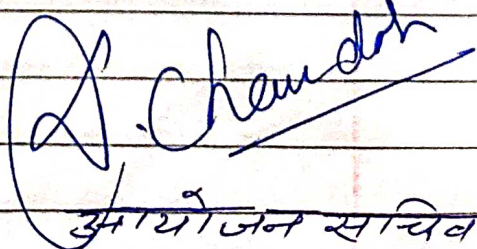 S. Chandok
आयोजन सचिव